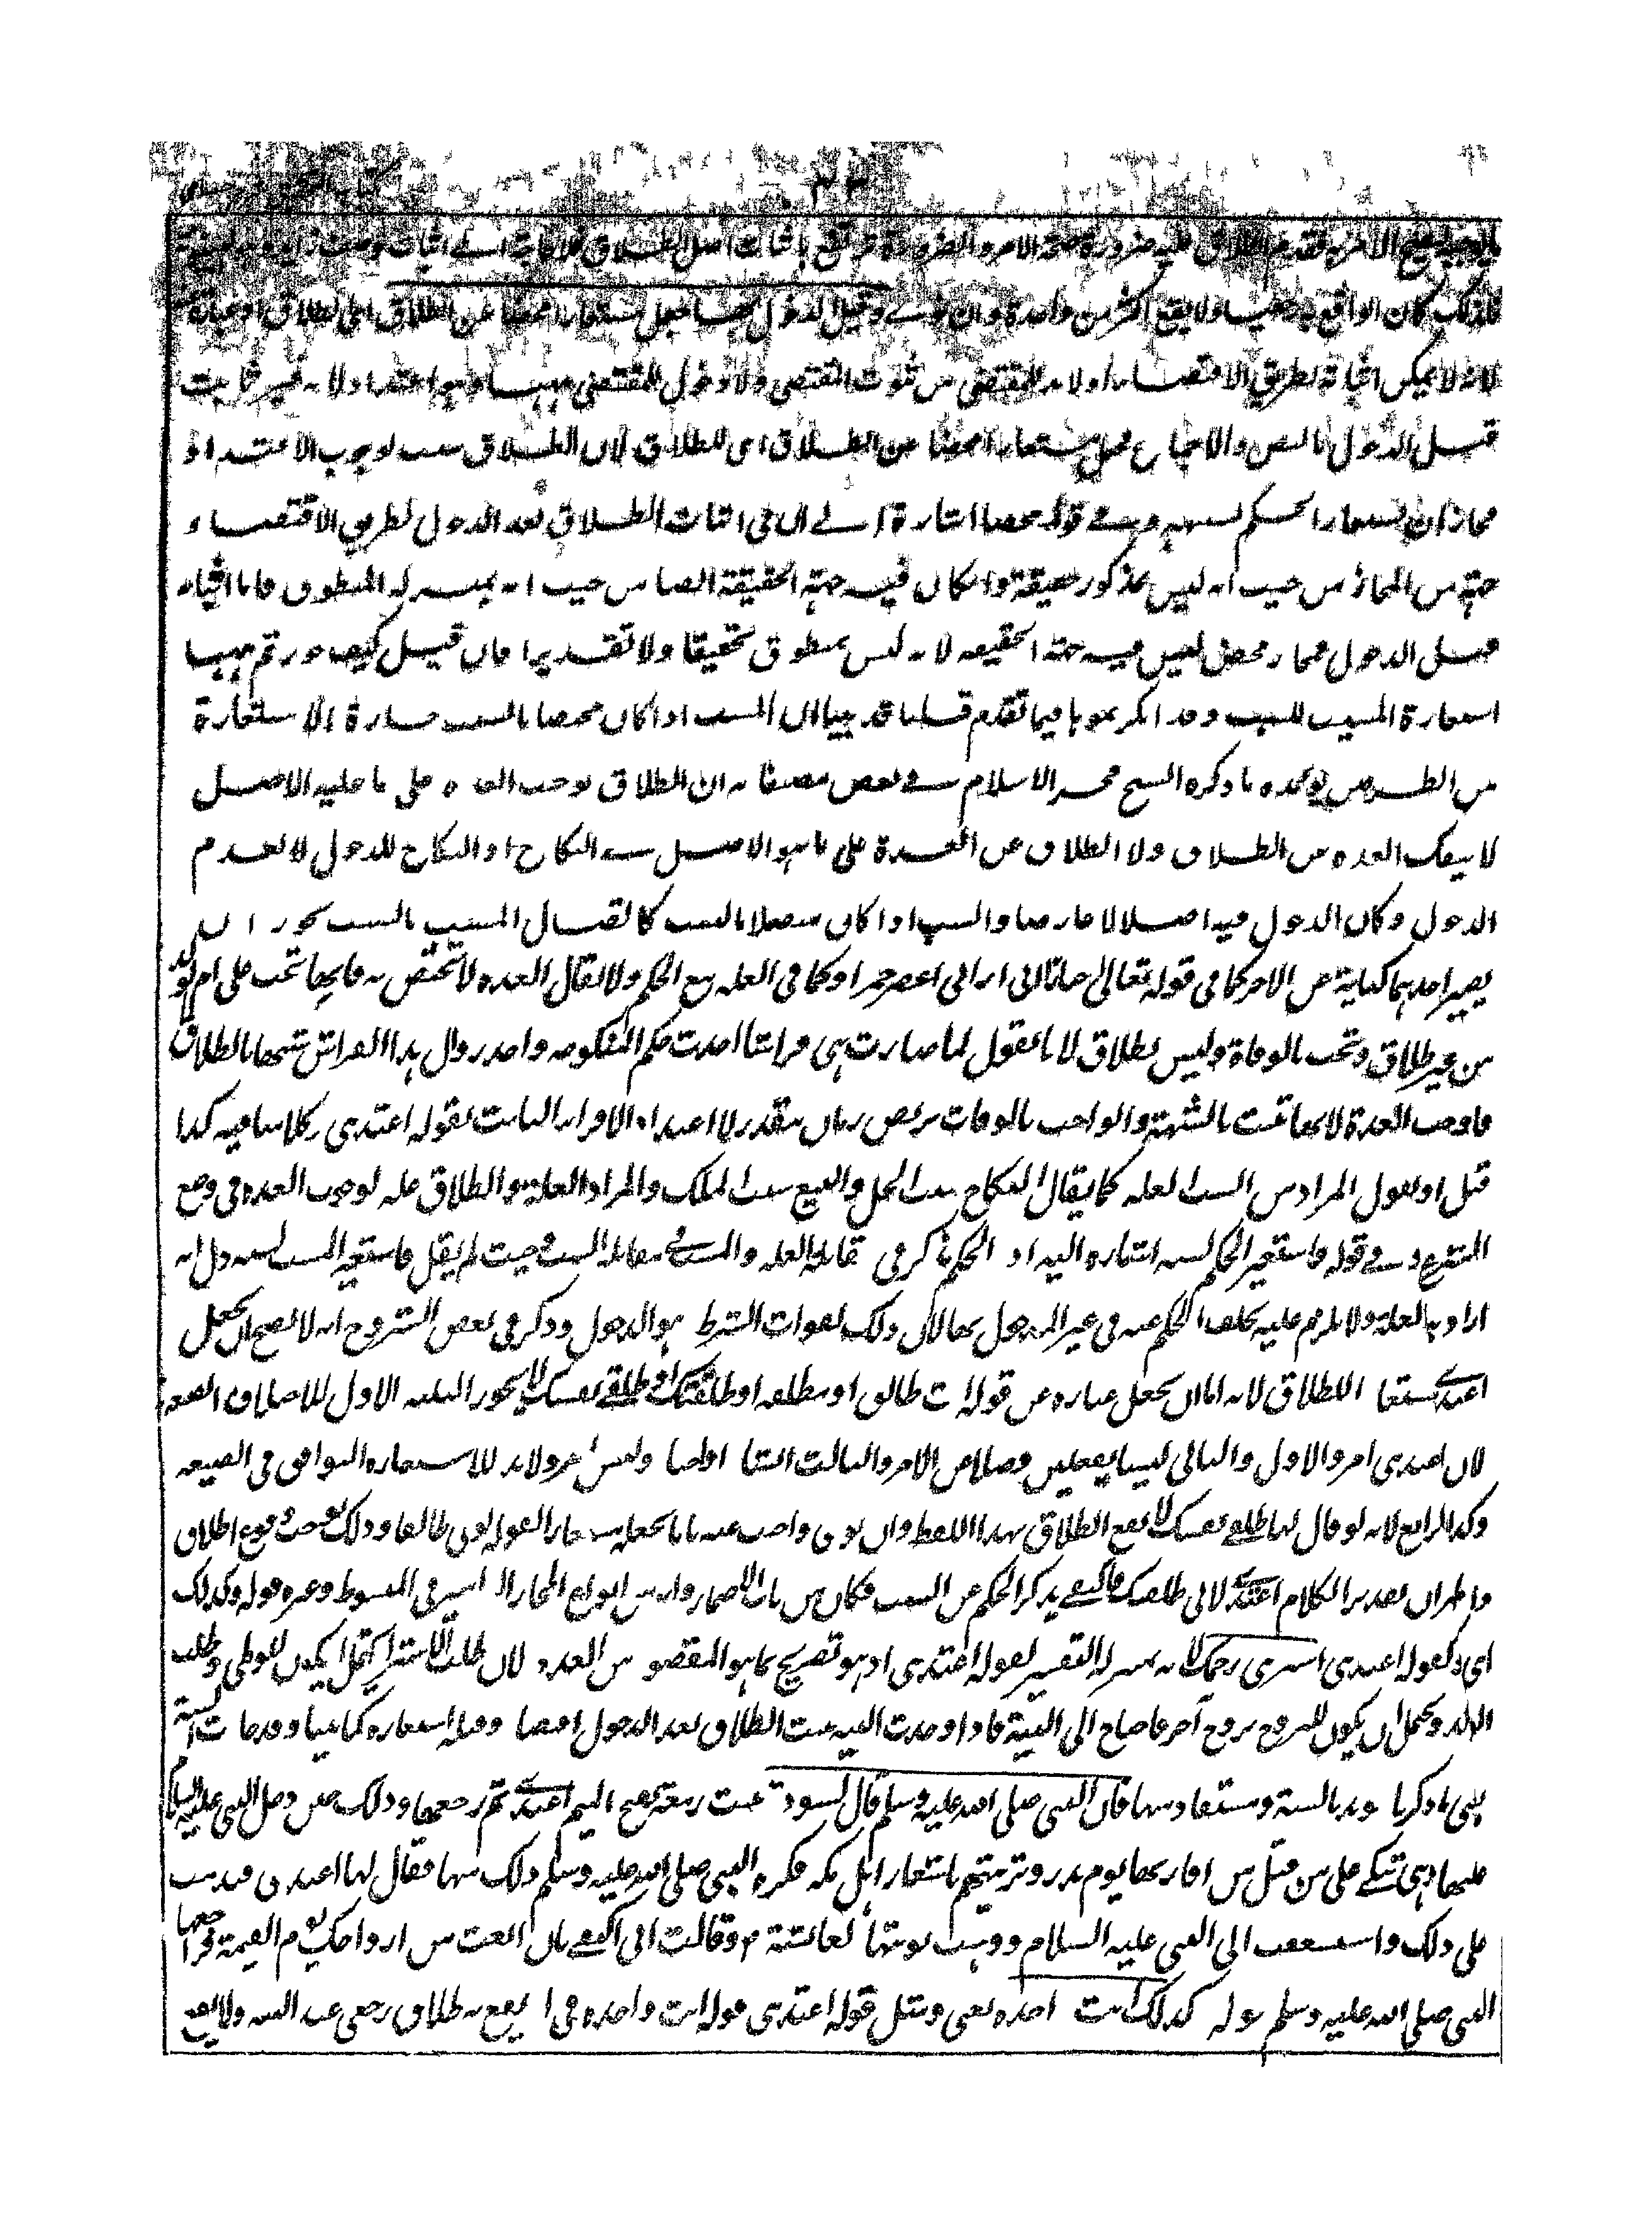 فلذلك كان الواقع به رجعيا ولا يقع اكثر من واحدة وان نوى وقبل الدخول بها جعل مستعارا محضا عن الطلاق
لانه لا يمكن اثباته بطريق الاقتضاء اذ لا بد للمقتضى من ثبوت المقتضى ولا وجوب للمقتضى ههنا وهو اعتداد لانه غير ثابت
قبل الدخول بالنص والاجماع فجعل مستعارا محضا عن الطلاق اى للطلاق لان الطلاق سبب لوجوب الاعتداد
مجازا ان يستعار الحكم لسببه وفى قوله محضا اشارة الى ان فى اثبات الطلاق بعد الدخول بطريق الاقتضاء
جهة من المجاز من حيث انه ليس بمذكور حقيقة وان كان فيه جهة الحقيقة ايضا من حيث انه بمنزلة المنطوق فاما اثباته
قبل الدخول فمجاز محض ليس فيه جهة الحقيقة لانه ليس بمنطوق تحقيقا ولا تقديرا فان قيل كيف جوزتم ههنا
استعارة المسبب للسبب وقد انكرتموها فيما تقدم قلنا قد بينا ان المسبب اذا كان مختصا بالسبب جازت الاستعارة
من الطرفين يؤيده ما ذكره الشيخ فخر الاسلام فى بعض مصنفاته ان الطلاق يوجب العدة على ما عليه الاصل
لا ينفك العدة عن الطلاق ولا الطلاق عن العدة على ما هو الاصل فى النكاح اذ النكاح للدخول لا لعدم
الدخول وكان الدخول فيه اصلا لا عارضا والسبب اذا كان متصلا بالمسبب كاتصال المسبب بالسبب يجوز ان
يصير احدهما كناية عن الاخر كما فى قوله تعالى حاكيا انى ارانى اعصر خمرا وكما فى العلة مع الحكم ولا يقال العدة لا تختص به فانها تجب على ام الولد
من غير طلاق وتجب بالوفاة وليس بطلاق لانا نقول لما صارت هى فراشا اخذت حكم المنكوحة واخذ زوال هذا الفراش شبها بالطلاق
فاوجب العدة لانها تثبت بالشبهة والواجب بالوفات تربص زمان مقدر لا اعتداد الاقراء الثابت بقوله اعتدى وكلامنا فيه كذا
قيل او نقول المراد من السبب العلة كما يقال النكاح سبب الحل والبيع سبب الملك والمراد العلية والطلاق علة لوجوب العدة فى وضع
الشرع وفى قوله فاستعير الحكم لسببه اشارة اليه اذ الحكم يذكر فى مقابلة العلة والمسبب فى مقابلة السبب فحيث لم يقل فاستعير المسبب لسببه دل انه
اراد به العلة ولا يلزم عليه تخلف الحكم عنه فى غير المدخول بها لان ذلك لفوات الشرط وهو الدخول وذكر فى بعض الشروح انه لا يصح ان يجعل
اعتدى مستعارا للطلاق لانه اما ان يجعل عبارة عن قوله انت طالق او مطلقة او طلقتك او طلقى نفسك لا يجوز الثلثة الاول للاختلاف الصيغة
لان اعتدى امر والاول والثانى ليسا بفعلين فضلا عن الامر والثالث ان كان فعلا وليس بامر ولا بد للاستعارة التوافق فى الصيغة
وكذا الرابع لانه لو قال لها طلقى نفسك لا يقع الطلاق بهذا اللفظ وان نوى واجيب عنه بانا نجعله مستعارا لقوله كونى طالقا وذلك يوجب وقوع الطلاق
واظن ان تقدير الكلام اعتدى لانى طلقتك فاكتفى بذكر الحكم عن السبب فكان من باب الاضمار وانه من انواع المجاز اليه اشير فى المبسوط وغيره قوله وكذلك
اى وكقوله اعتدى استبرئ رحمك لانه بمنزلة التفسير لقوله اعتدى اذ هو تصريح بما هو المقصود من العدة لان طلب الاستبراء يحتمل ان يكون للوطى وطلب
الولد ويحتمل ان يكون للتزوج بزوج آخر فاحتاج الى النية فاذا وجدت النية يثبت الطلاق بعد الدخول اقتضاء وقبله استعارة كما بينا وقد جاءت السنة
يعنى ما ذكرنا مؤيد بالسنة ومستفاد منها فان النبى صلى الله عليه وسلم قال لسودة بنت زمعة بفتح الميم اعتدى ثم راجعها وذلك حين دخل النبى عليه السلام
عليها وهى تبكى على من قتل من اقاربها يوم بدر وترثيهم باشعار اهل مكة فكره النبى صلى الله عليه وسلم ذلك منها فقال لها اعتدى فندمت
على ذلك واستشفعت الى النبى عليه السلام ووهبت نوبتها لعائشة وقالت انى اكتفى بان ابعث من ازواجك يوم القيمة فراجعها
النبى صلى الله عليه وسلم قوله كذلك انت واحدة يعنى ومثل قوله اعتدى قوله انت واحدة فى انه يقع به طلاق رجعى عند النية ولا يقع